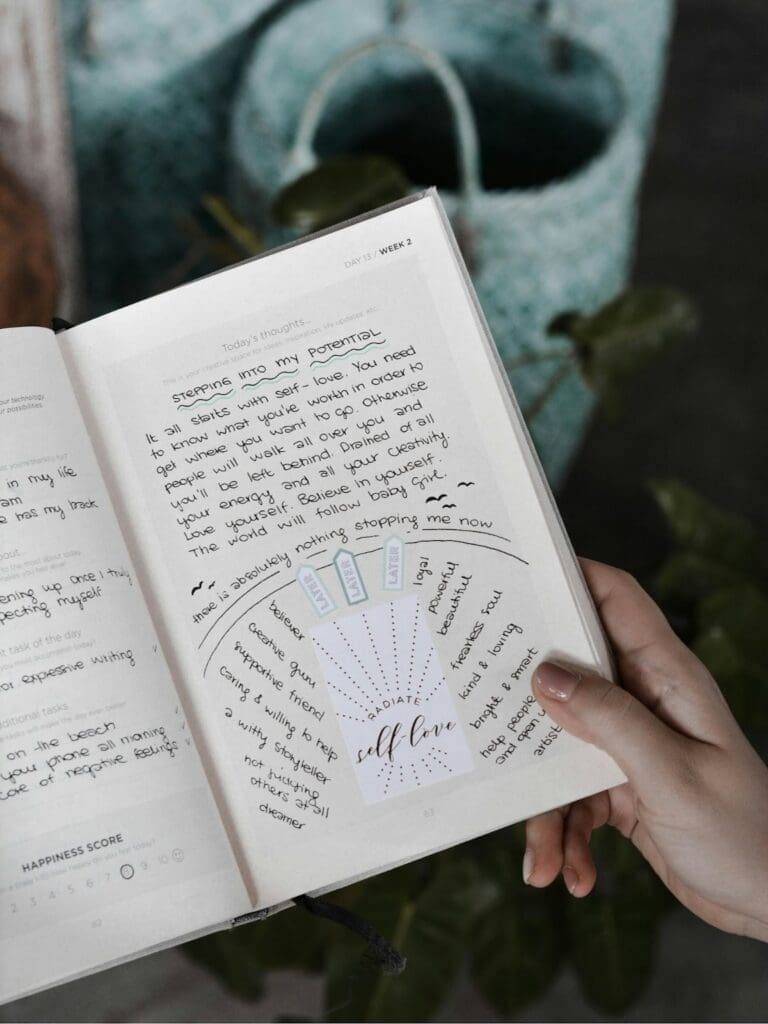 your technology
ur possibilities.
in my life
am
e has my back
bout...
ening up once I truly
pecting myself
t task of the day
or expressive writing
ditional tasks
on the beach
your phone all morning
care of negative feelings
HAPPINESS SCORE
2 3 4 5 6 7 8 9 10
DAY 13 / WEEK 2
Today's thoughts...
This is your creative space for ideas, inspiration, life updates, etc.
STEPPING INTO MY POTENTIAL
It all starts with self-love. You need
to know what you're worth in order to
get where you want to go. Otherwise
people will walk all over you and
you'll be left behind. Drained of all
your energy and all your creativity.
Love yourself. Believe in yourself.
The world will follow baby girl.
there is absolutely nothing stopping me now
LATER
LATER
LATER
believer
creative guru
supportive friend
caring & willing to help
a witty storyteller
not judging
others at all
dreamer
RADIATE
self-love
loyal
powerful
beautiful
fearless soul
kind & loving
bright & smart
help people
and open
artist
63